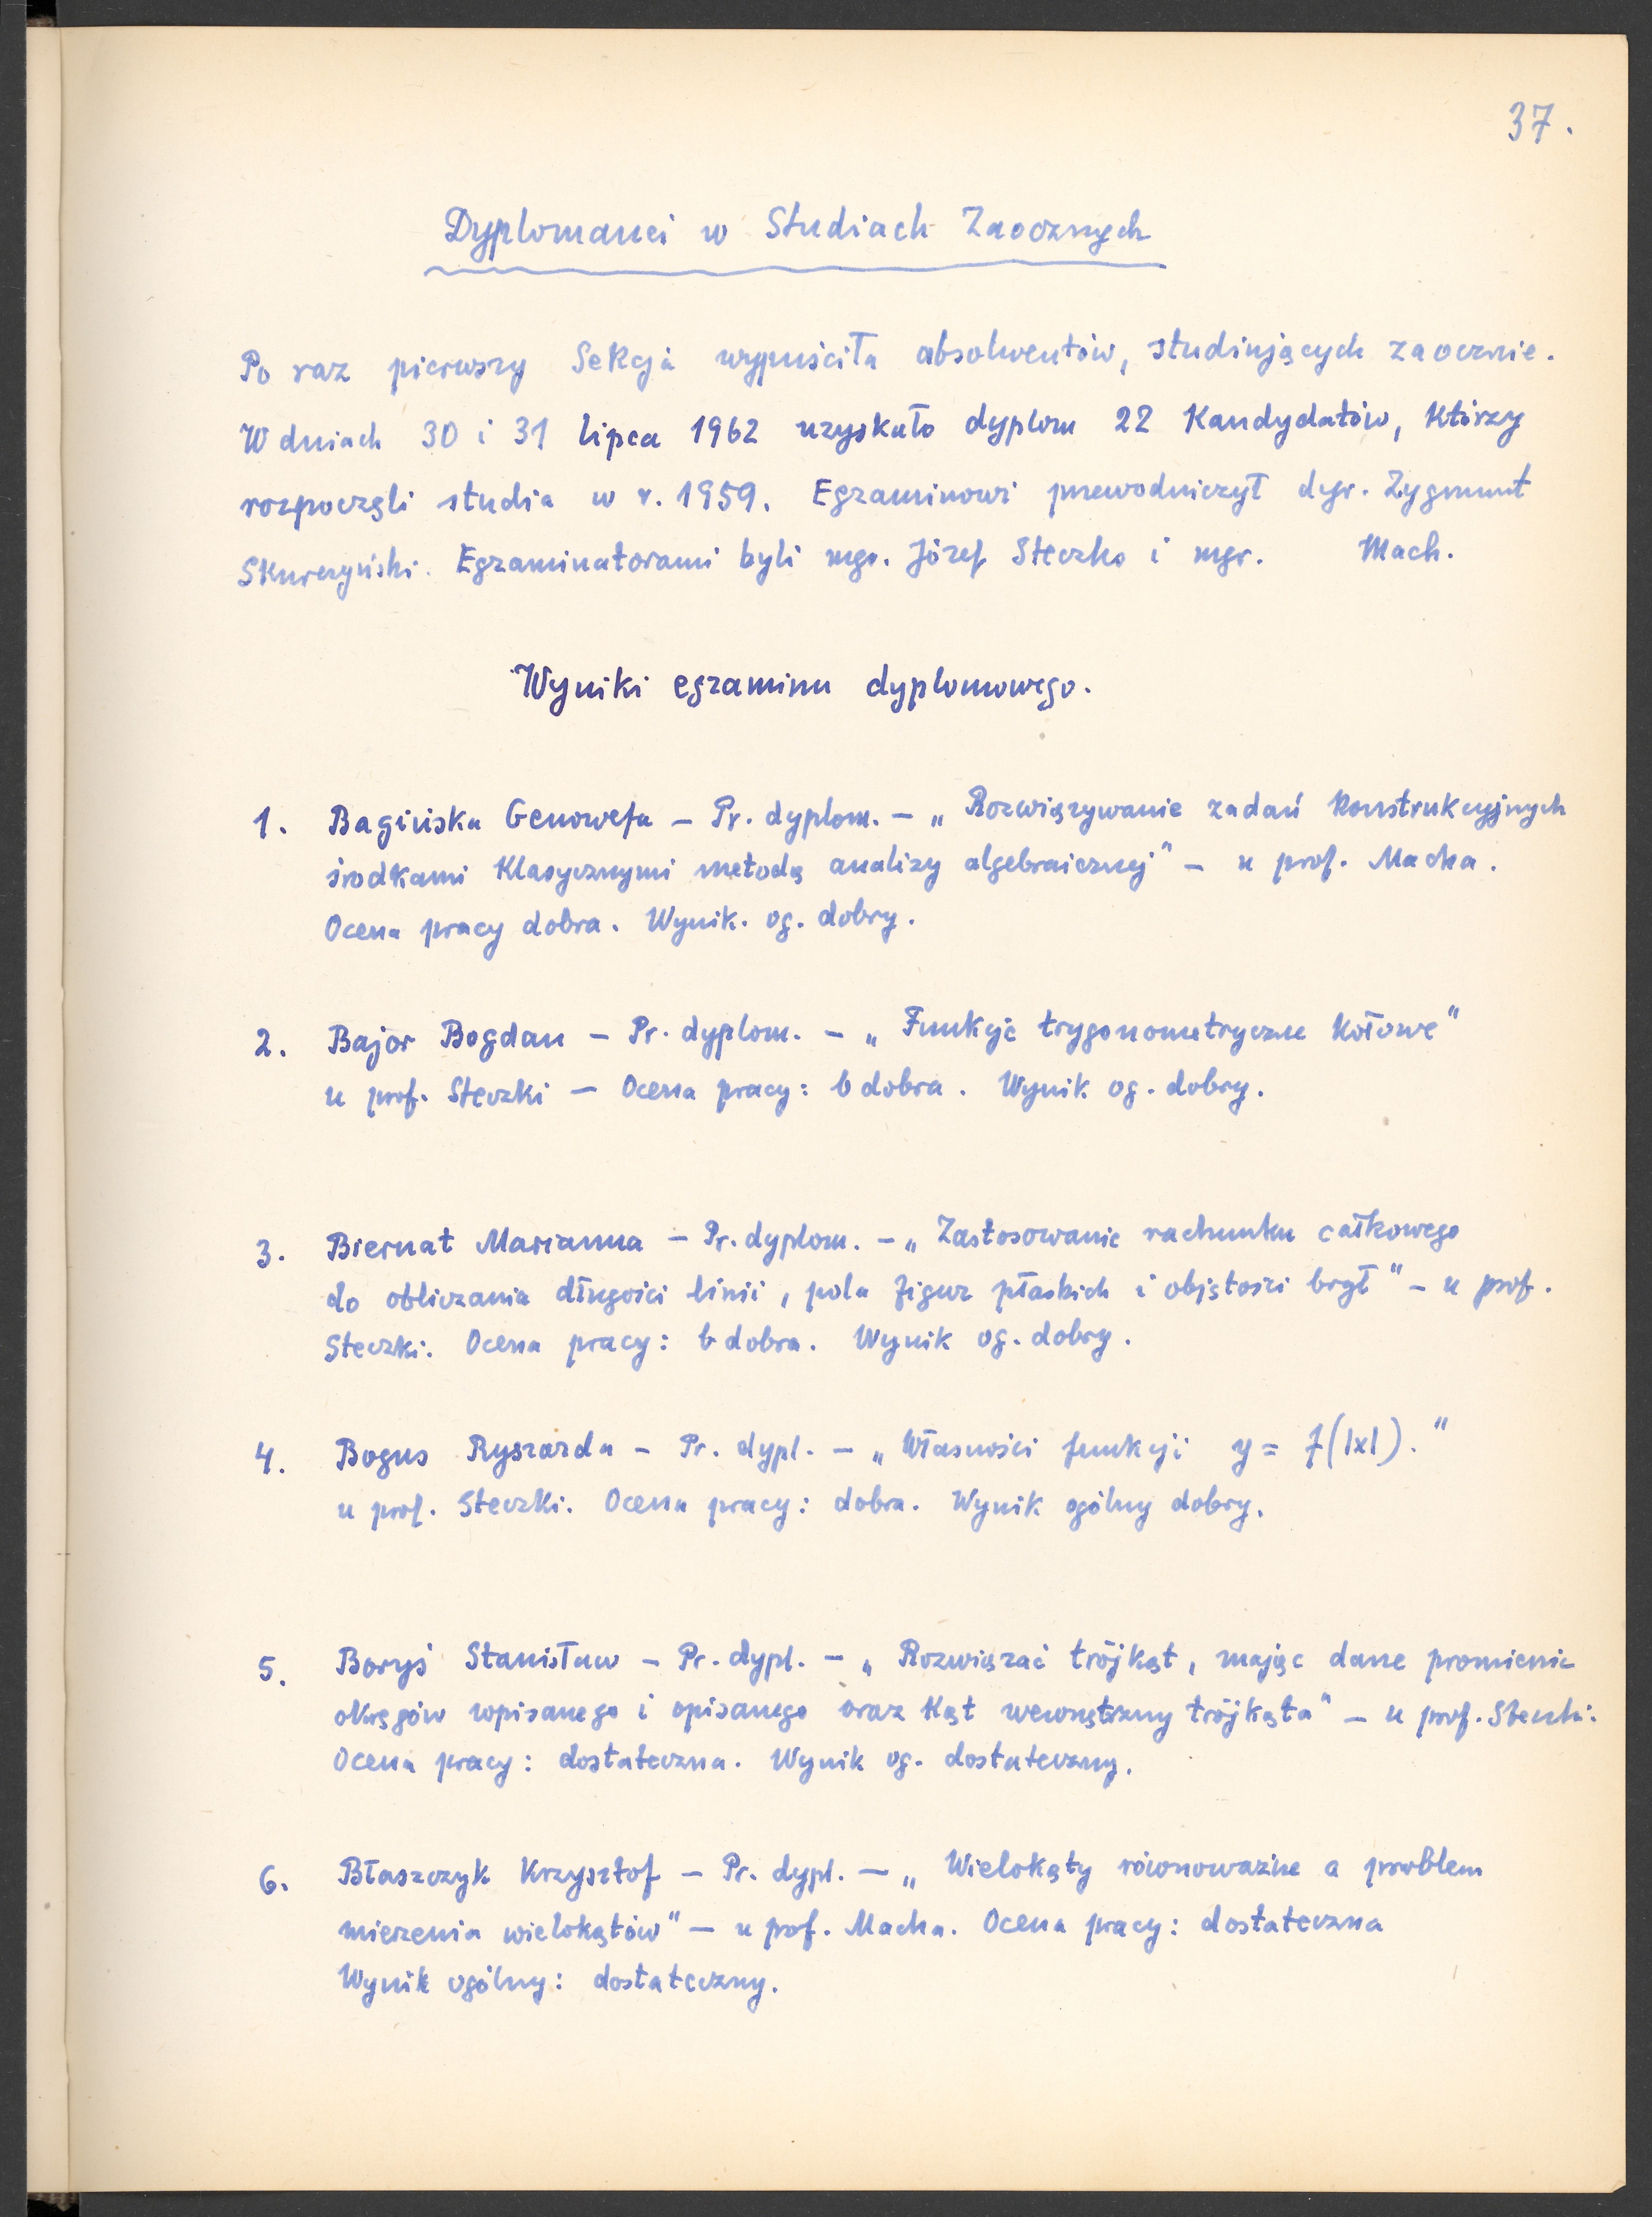 37.
Dyplomanci w Studiach Zaocznych
Po raz pierwszy Sekcja wypuściła absolwentów, studiujących zaocznie.
W dniach 30 i 31 lipca 1962 uzyskało dyplom 22 Kandydatów, którzy
rozpoczęli studia w r. 1959. Egzaminowi przewodniczył dyr. Zygmunt
Skurczyński. Egzaminatorami byli mgr. Józef Steczko i mgr. Mach.
Wyniki egzaminu dyplomowego.
1. Bagińska Genowefa – Pr. dyplom. – „Rozwiązywanie zadań konstrukcyjnych
środkami klasycznymi metodą analizy algebraicznej" – u prof. Macha.
Ocena pracy dobra. Wynik. og. dobry.
2. Bajor Bogdan – Pr. dyplom. – „Funkcje trygonometryczne kołowe"
u prof. Steczki – Ocena pracy: b dobra. Wynik og. dobry.
3. Biernat Marianna – Pr. dyplom. – „Zastosowanie rachunku całkowego
do obliczania długości linii, pola figur płaskich i objętości brył" – u prof.
Steczki. Ocena pracy: b dobra. Wynik og. dobry.
4. Bogus Ryszarda – Pr. dypl. – „Własności funkcji y = f(|x|)."
u prof. Steczki. Ocena pracy: dobra. Wynik ogólny dobry.
5. Boryś Stanisław – Pr. dypl. – „Rozwiązać trójkąt, mając dane promienie
okręgów wpisanego i opisanego oraz kąt wewnętrzny trójkąta" – u prof. Steczki.
Ocena pracy: dostateczna. Wynik og. dostateczny.
6. Błaszczyk Krzysztof – Pr. dypl. – „Wielokąty równoważne a problem
mierzenia wielokątów" – u prof. Macha. Ocena pracy: dostateczna
Wynik ogólny: dostateczny.